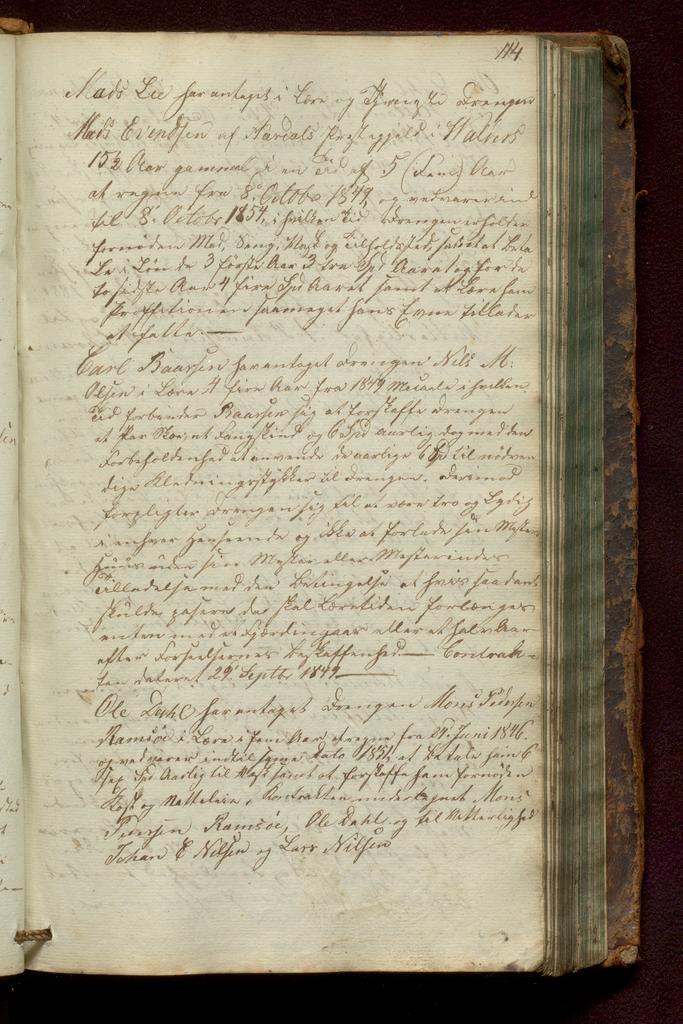 114
Mads Lie har antaget i Lære og Tjeneste Drengen
Mads Evendsen af Aurdals Præstegjeld i Walders
15½ Aar gammel i en Tid af 5 (fem) Aar
at regne fra 8. Octobr 1849, og vedvarer ind
til 8. Octobr 1854, i hvilken Tid Drengen erholder
fornøden Mad, Seng, Vask og Tilholdsted, samt at beta
le i Løn de 3 første Aar 3 tre Spd Aaret og for de
to sidste Aar 4 fire Spd Aaret samt at lære ham
Profitionen saameget hans Evne tillader
at fatte.
Carl Baarsen har antaget Drengen Nils M.
Olsen i Lære 4 fire Aar fra 1849 i hvilken
Tid forbinder Baarsen sig at forskaffe Drengen
et Par Skoe, et Fangskind og 6 Spd aarlig dog med den
Forbeholdenhed at anvende de aarlige 6 Spd til nødven
dige Klædningsstykker til Drengen. Derimod
forpligter Drengen sig til at være tro og lydig
i enhver Henseende og ikke at forlade sin Mesters
Huus uden sin Mester eller Mesterindes
Tilladelse med den Betingelse at hvis saadant
skulde pasere da skal Læretiden forlænges
enten med et Fjerdingaar eller et halv Aar
efter Forseelsernes Beskaffenhed. Contrak-
ten dateret 29 Septbr 1849
Ole Dahl har antaget Drengen Mons Pedersen
Ramsøe i Lære i fem Aar at regne fra 24. Juni 1846.
og vedvarer indtil samme Dato 1851, at betale ham 6
sex Spd Aarlig til samt at forskaffe ham fornøden
Kost og Natteleie. Kontrakten undertegnet Mons
Pedersen Ramsøe, Ole Dahl og til Vitterlighed
Johan E Nilsen og Lars Nilsen